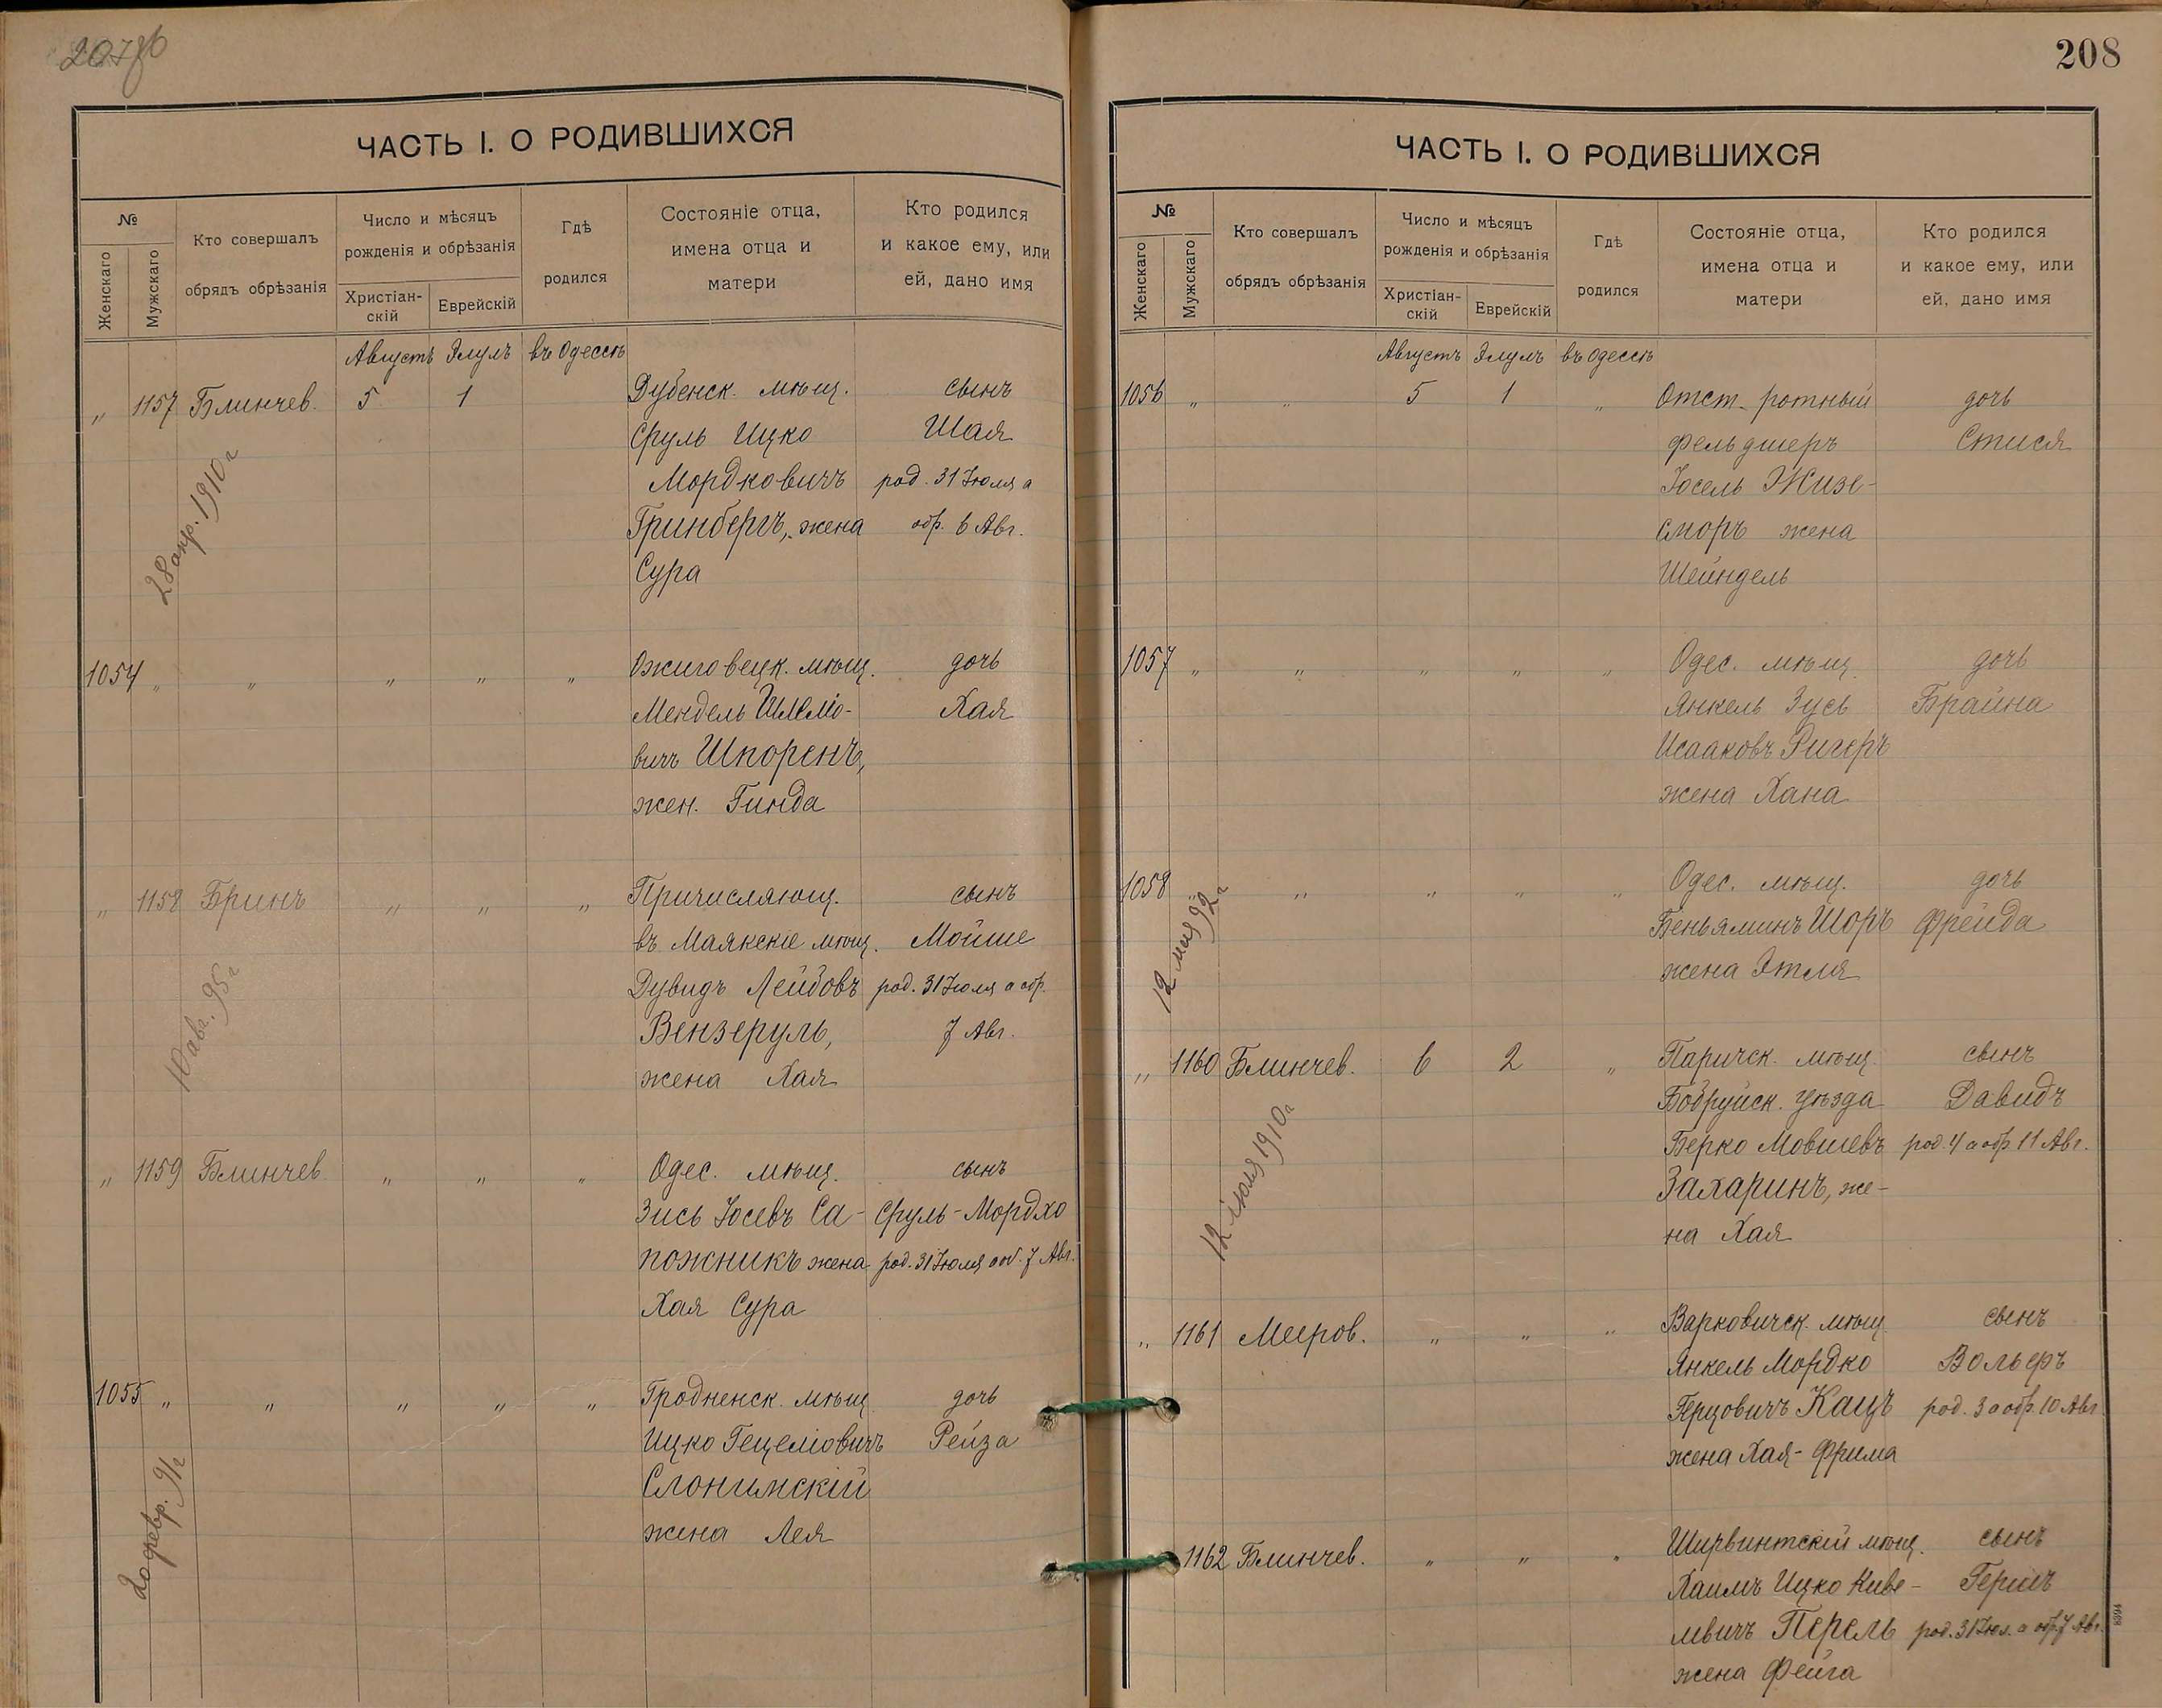 207об
ЧАСТЬ I. О РОДИВШИХСЯ
№
Женскаго
Мужскаго
Кто совершалъ
обрядъ обрѣзанія
Число и мѣсяцъ
рожденія и обрѣзанія
Христіан-
скій
Еврейскій
Гдѣ
родился
Состояніе отца,
имена отца и
матери
Кто родился
и какое ему, или
ей, дано имя
Августъ Элулъ въ Одессѣ
„ 1157 Блинчев. 5 1 Дубенск. мѣщ. сынъ
Сруль Ицко Шая
Мордковичъ род. 31 Іюля а
Гринбергъ, жена обр. 6 Авг.
Сура
28 апр. 1910 г
1054 „ „ „ „ „ Ожиговецк. мѣщ. дочь
Мендель Шлемо- Хая
вичъ Шпоренъ,
жен. Гинда
„ 1158 Бринъ „ „ „ Причисляющ. сынъ
въ Маякскіе мѣщ. Мойше
Дувидъ Лейбовъ род. 31 Іюля а обр.
Вензеруль, 7 Авг.
жена Хая
10 авг. 95 г
„ 1159 Блинчев. „ „ „ Одес. мѣщ. сынъ
Зись Іосевъ Са- Сруль-Мордхо
пожникъ жена род. 31 Іюля а об. 7 Авг.
Хая Сура
1055 „ „ „ „ „ Гродненск. мѣщ. дочь
Ицко Гецеліовичъ Рейза
Слонимскій
жена Лея
20 февр. 91 г
208
ЧАСТЬ I. О РОДИВШИХСЯ
№
Женскаго
Мужскаго
Кто совершалъ
обрядъ обрѣзанія
Число и мѣсяцъ
рожденія и обрѣзанія
Христіан-
скій
Еврейскій
Гдѣ
родился
Состояніе отца,
имена отца и
матери
Кто родился
и какое ему, или
ей, дано имя
Августъ Элулъ въ Одессѣ
1056 „ „ 5 1 „ Отст. ротный дочь
фельдшеръ Стися
Іосель Жизе-
сморъ жена
Шейндель
1057 „ „ „ „ „ Одес. мѣщ. дочь
Янкель Зусь Брайна
Исааковъ Ригеръ
жена Хана
1058 „ „ „ „ „ Одес. мѣщ. дочь
Беньяминъ Шоръ Фрейда
жена Этля
12 мая 92 г
„ 1160 Блинчев. 6 2 „ Паричск. мѣщ. сынъ
Бобруйск. уѣзда Давидъ
Берко Мовшевъ род. 4 а обр. 11 Авг.
Захаринъ, же-
на Хая
12 іюля 1910 г
„ 1161 Мееров. „ „ „ Варковичск. мѣщ. сынъ
Янкель Мордко Вольфъ
Герцовичъ Кацъ род. 3 а обр. 10 Авг.
жена Хая-Фрима
1162 Блинчев. „ „ „ Ширвинтскій мѣщ. сынъ
Хаимъ Ицко Киве- Гершъ
левичъ Перель род. 31 Іюл. а обр. 7 Авг.
жена Фейга
8394